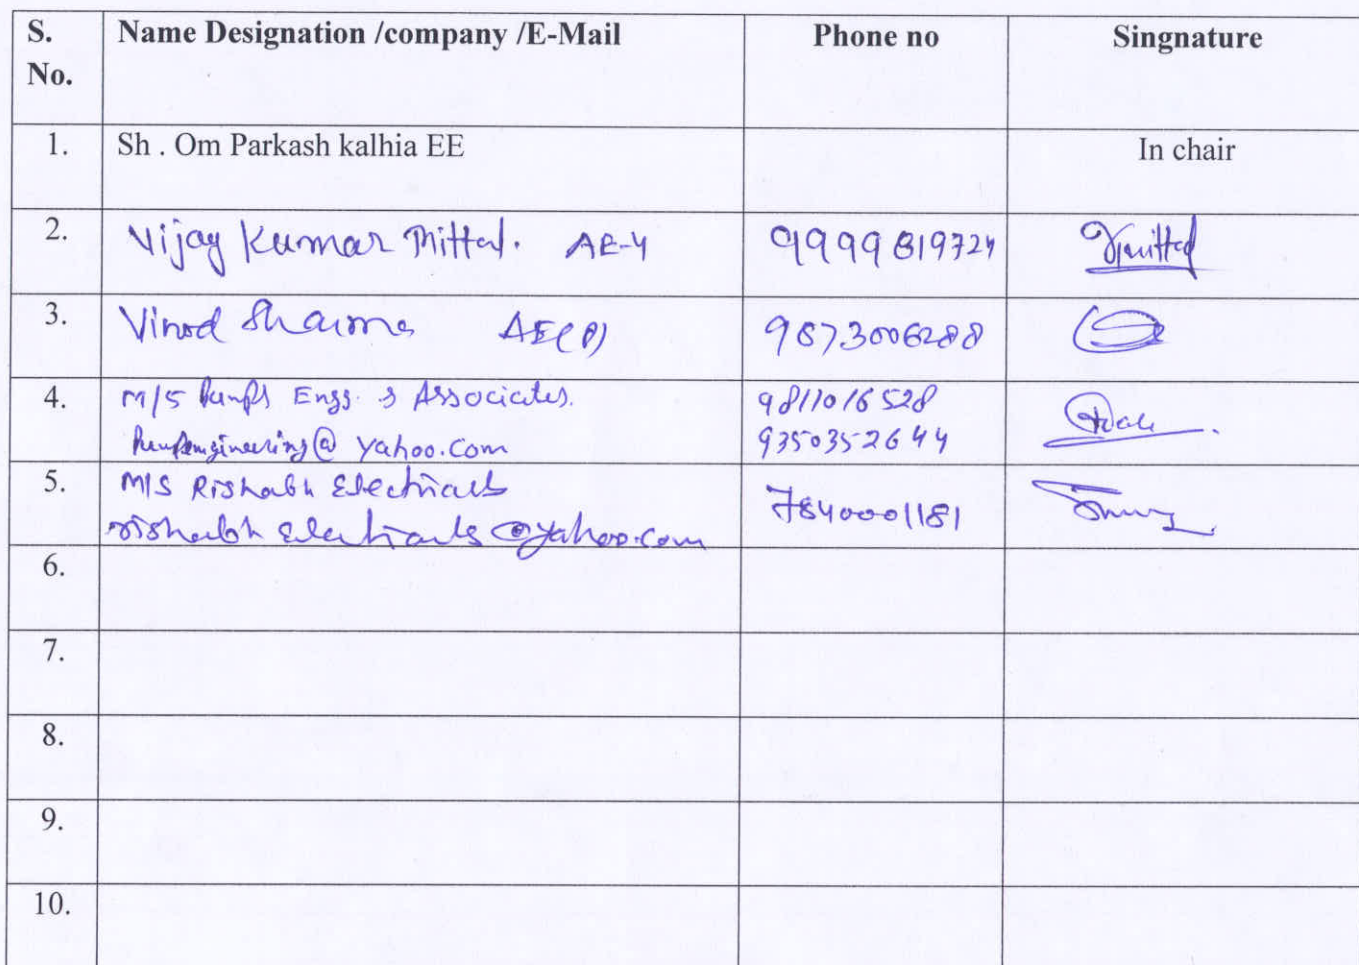 S. No. Name Designation /company /E-Mail Phone no Singnature
1. Sh . Om Parkash kalhia EE In chair
2. Vijay Kumar Mittal. AE-4 9999819724 Vkmittal
3. Vinod Sharma AE(P) 9873006288
4. M/S Pumps Engg. & Associates. 9811016528
pumpengineering@yahoo.com 9350352644
5. M/S Rishabh Electricals
rishabh electricals @yahoo.com 7840001181
6.
7.
8.
9.
10.